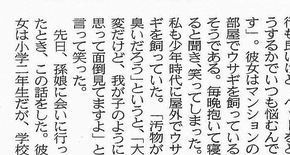 行も良いけど、ペットをど
うするかでいつも悩むんで
す」。彼女はマンションの
部屋でウサギを飼っている
そうである。毎晩抱いて寝
ると聞き、笑ってしまった。
私も少年時代に屋外でウサ
ギを飼っていた。「汚物が
臭いだろう」というと、「大
変だけど、我が子のように
思って面倒見てますよ」と
言って笑った。
先日、孫娘に会いに行っ
たとき、この話をした。彼
女は小学二年生だが、学校